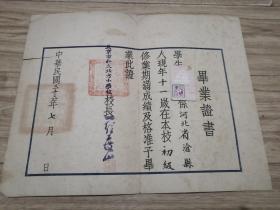 畢業證書
學生 係河北省滄縣
人現年十一歲在本校初級
修業期滿成績及格准予畢
業此證
校長
中華民國三十三年七月 日